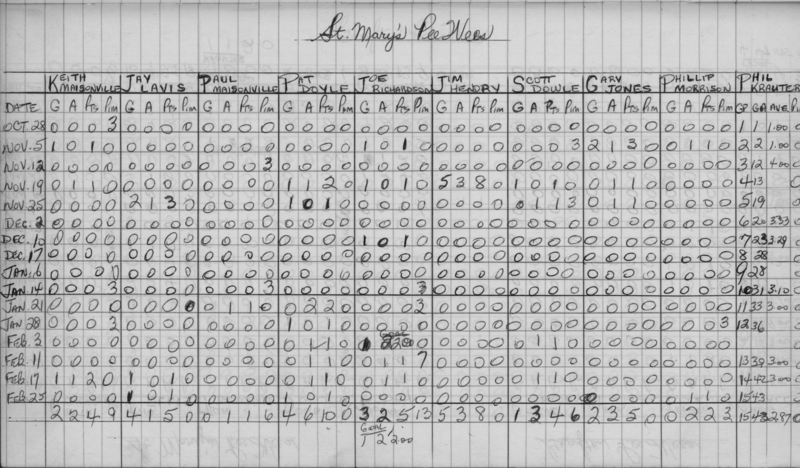 St. Mary's Pee Wees
KEITH MAISONVILLE JAY LAVIS PAUL MAISONVILLE PAT DOYLE JOE RICHARDSON JIM HENDRY SCOTT DOWLE GARY JONES PHILLIP MORRISON PHIL KRAUTER
DATE G A Pts Pim G A Pts Pim G A Pts Pim G A Pts Pim G A Pts Pim G A Pts Pim G A Pts Pim G A Pts Pim G A Pts Pim GP GA AVE P
OCT. 28 0 0 0 3 0 0 0 0 0 0 0 0 0 0 0 0 0 0 0 0 0 0 0 0 0 0 0 0 0 0 0 0 0 0 0 0 1 1 1.00
NOV. 5 1 0 1 0 0 0 0 0 0 0 0 0 0 0 0 0 1 0 1 0 0 0 0 0 0 0 0 3 2 1 3 0 0 1 1 0 2 2 1.00
NOV. 12 0 0 0 0 0 0 0 0 0 0 0 3 0 0 0 0 0 0 0 0 0 0 0 0 0 0 0 0 0 0 0 0 0 0 0 0 3 12 4.00
NOV. 19 0 1 1 0 0 0 0 0 0 0 0 0 1 1 2 0 1 0 1 0 5 3 8 0 1 0 1 0 0 1 1 0 0 0 0 0 4 13
NOV. 25 0 0 0 0 2 1 3 0 0 0 0 0 1 0 1 0 0 0 0 0 0 0 0 0 0 1 1 3 0 1 1 0 0 0 0 0 5 19
DEC. 2 0 0 0 0 0 0 0 0 0 0 0 0 0 0 0 0 0 0 0 0 0 0 0 0 0 0 0 0 0 0 0 0 0 0 0 0 6 20 333
DEC. 10 0 0 0 0 0 0 0 0 0 0 0 0 0 0 0 0 1 0 1 0 0 0 0 0 0 0 0 0 0 0 0 0 0 0 0 0 7 23 3.29
DEC. 17 0 0 0 0 0 0 0 0 0 0 0 0 0 0 0 0 0 0 0 0 0 0 0 0 0 0 0 0 0 0 0 0 0 0 0 0 8 28
JAN. 6 0 0 0 0 0 0 0 0 0 0 0 0 0 0 0 0 0 0 0 0 0 0 0 0 0 0 0 0 0 0 0 0 0 0 0 0 9 28
JAN. 14 0 0 0 3 0 0 0 0 0 0 0 3 0 0 0 0 0 0 0 3 0 0 0 0 0 0 0 0 0 0 0 0 0 0 0 0 10 31 3.10
JAN. 21 0 0 0 0 0 0 0 0 0 1 1 0 0 2 2 0 0 0 0 3 0 0 0 0 0 0 0 0 0 0 0 0 0 0 0 0 11 33 3.00
JAN 28 0 0 0 3 0 0 0 0 0 0 0 0 1 0 1 0 0 0 0 0 0 0 0 0 0 0 0 0 0 0 0 0 0 0 0 3 12 36
FEB. 3 0 0 0 0 0 0 0 0 0 0 0 0 0 1 1 0 1 GOAL 0 0 0 0 0 1 1 0 0 0 0 0 0 0 0 0
FEB. 11 0 0 0 0 0 0 0 0 0 0 0 0 0 1 1 0 0 1 1 7 0 0 0 0 0 0 0 0 0 0 0 0 0 0 0 0 13 39 3.00
FEB. 17 1 1 2 0 1 0 1 0 0 0 0 0 0 1 1 0 0 1 1 0 0 0 0 0 0 1 1 0 0 0 0 0 0 0 0 0 14 42 3.00
FEB. 25 0 0 0 0 1 0 1 0 0 0 0 0 0 0 0 0 0 0 0 0 0 0 0 0 0 0 0 0 0 0 0 0 0 1 1 0 15 43
2 2 4 9 4 1 5 0 0 1 1 6 4 6 10 0 3 2 5 13 5 3 8 0 1 3 4 6 2 3 5 0 0 2 2 3 15 43 2.87
GOAL
1 2 2.00